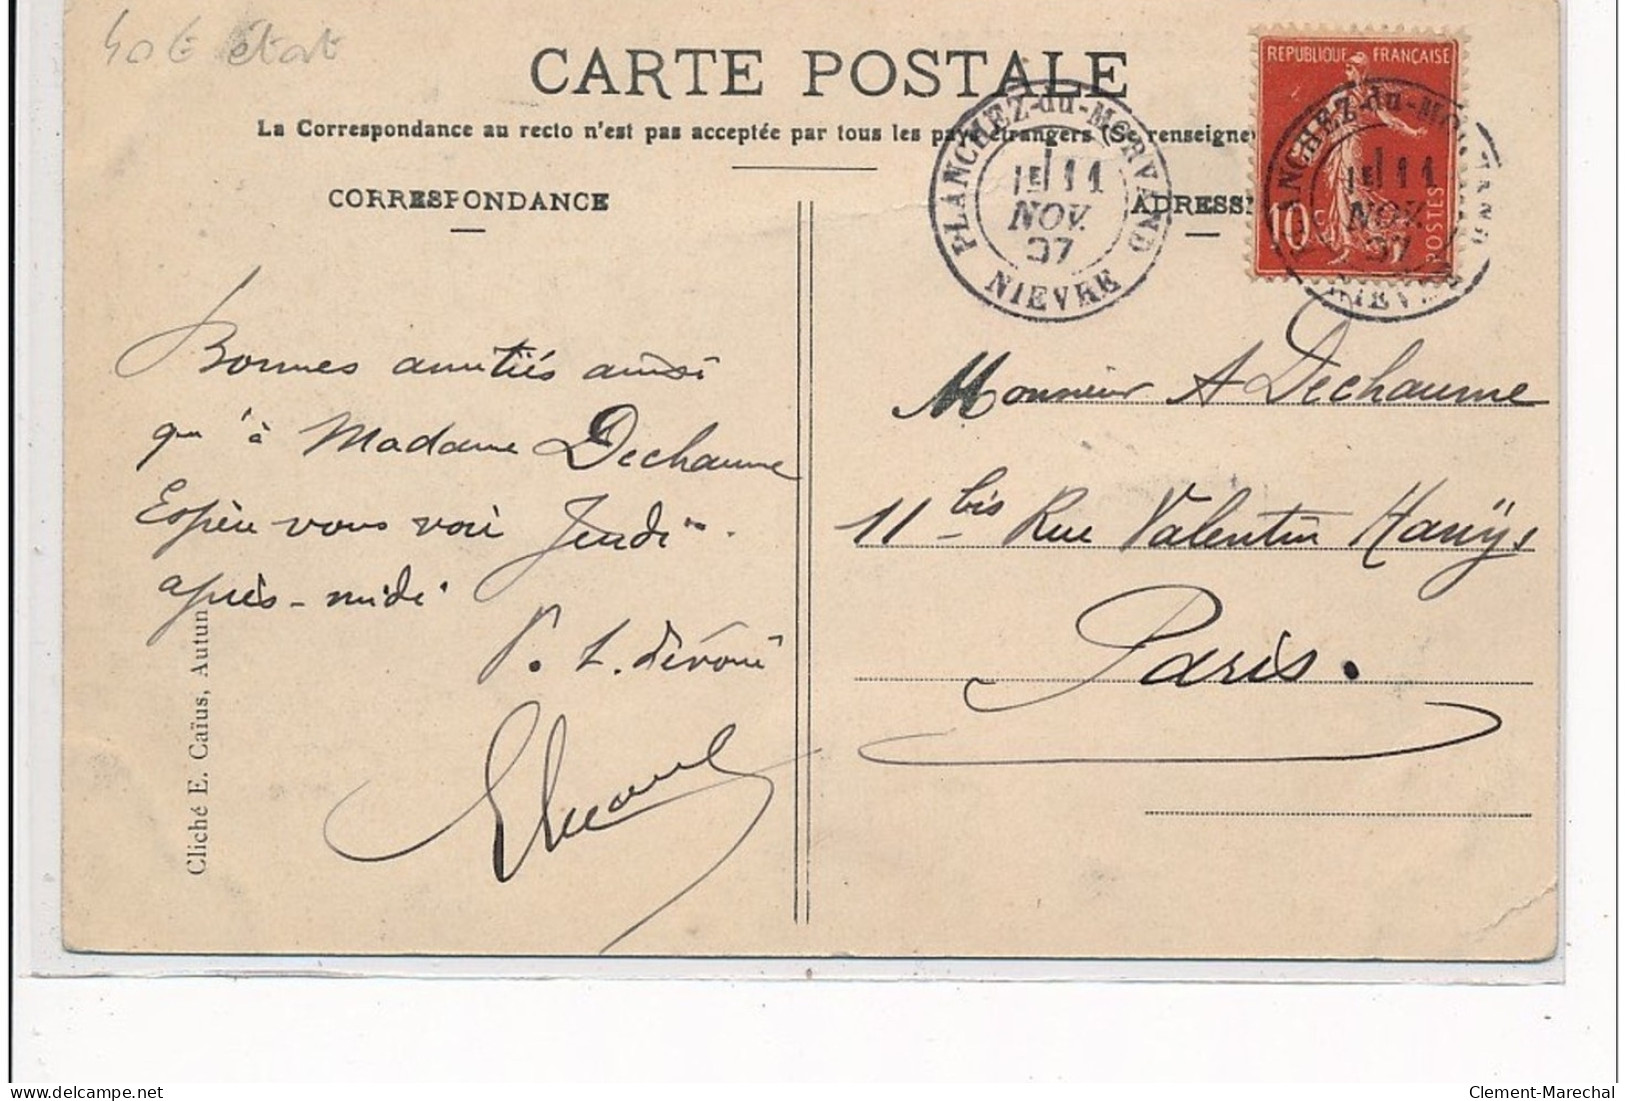 40 € état
CARTE POSTALE
La Correspondance au recto n'est pas acceptée par tous les pays étrangers (Se renseigner
CORRESPONDANCE
ADRESSE
REPUBLIQUE FRANÇAISE
10 c
POSTES
PLANCHEZ-du-MORVAND
1E 11
NOV.
07
NIEVRE
PLANCHEZ-du-MORVAND
1E 11
NOV.
07
NIEVRE
Bonnes amitiés ainsi
qu'à Madame Dechaume
Espère vous voir Jeudi
après-midi
V. L. dévoué
Monsieur A Dechaume
11 bis Rue Valentin Haüy
Paris.
Cliché E. Caïus, Autun
Clement-Marechal